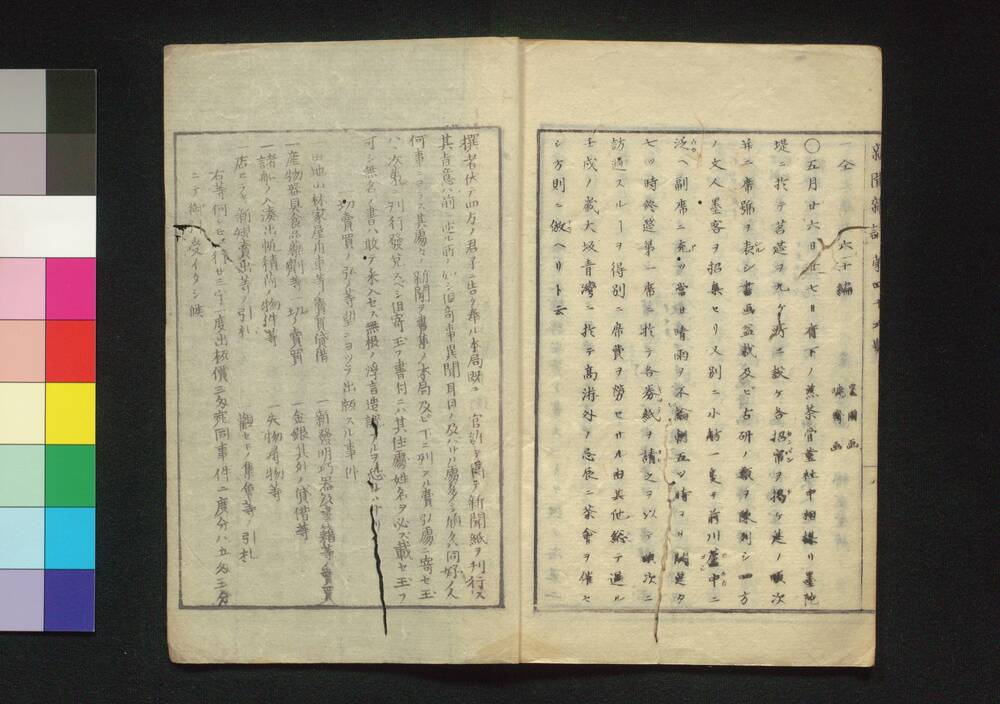 新聞雜誌 第四十九號
一 全 六十編 墨圖画
〇五月廿六日廿七日青下ノ煎茶會業社中相謀リ墨陀
堤ニ於テ茗莚ヲ九ヶ所ニ設ケ各招帘ヲ掲ケ莚ノ順次
并ニ席號ヲ表シ書画盆栽及ヒ古研ノ数ヲ陳列シ四方
ノ文人墨客ヲ招集セリ又別ニ小舫一隻ヲ前川蘆中ニ
泛ヘ副席ニ充ツ當日晴雨ヲ不論朝五ツ時ヨリ開莚夕
七ツ時終莚第一席ニ於テ各券紙ヲ請之ヲ以テ順次ニ
訪過スルヿヲ得別ニ席費ヲ勞セサル由其他総テ過ル
壬戌ノ歳大坂青灣ニ於テ高游外ノ忌辰ニ茶會ヲ催セ
シ方則ニ倣ヘリト云
撰者伏テ四方ノ君子ニ告ケ奉ル本局既ニ 官許ヲ得テ新聞紙ヲ刊行ス
其意ハ前ニ述ル所ノ如シ旧奇事異聞耳目ノ及ハサル處多シ願クハ同好ノ人
何事ニヨラス其處々ノ新聞ヲ書集メ本局及ヒ下ニ列スル賣弘處ニ寄セ玉
ハヽ次第ニ刊行發兌スベシ但寄玉フ書付ニハ其住處姓名ヲ必ス載セ玉フ
可シ無名ノ書ハ敢テ采入セス無根ノ浮言造説ヲ恐レハナリ
切賣買ノ弘メ等望ニヨツテ出板スル事件
田地山林家屋舟車等ノ賣買貸借 一新發明巧器及書籍等ノ賣買
一産物器具食品藥劑等一切ノ賣買 一金銀貸借等
一諸船ノ入湊出帆積荷ノ物件等 一失物尋物等
一店ビラキ新規賣出等ノ引札 觀セモノ集會等ノ引札
右等何レモ一行廿三字一度出板價三匁宛同事件二度分ハ五匁三分
ニテ御受イタシ候